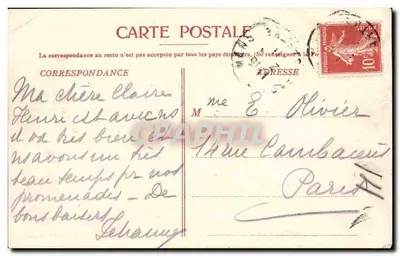 CARTE POSTALE
La correspondance au recto n'est pas acceptée par tous les pays étrangers. (Se renseigner à la
CORRESPONDANCE
ADRESSE
Ma chère Claire
Henri est avec nous
il va très bien et
nous avons un très
beau temps pr nos
promenades - De
bons baisers
M me E. Olivier
14 rue Cambacérès
Paris
10